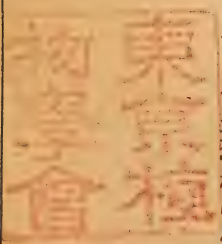 東京植
物學會